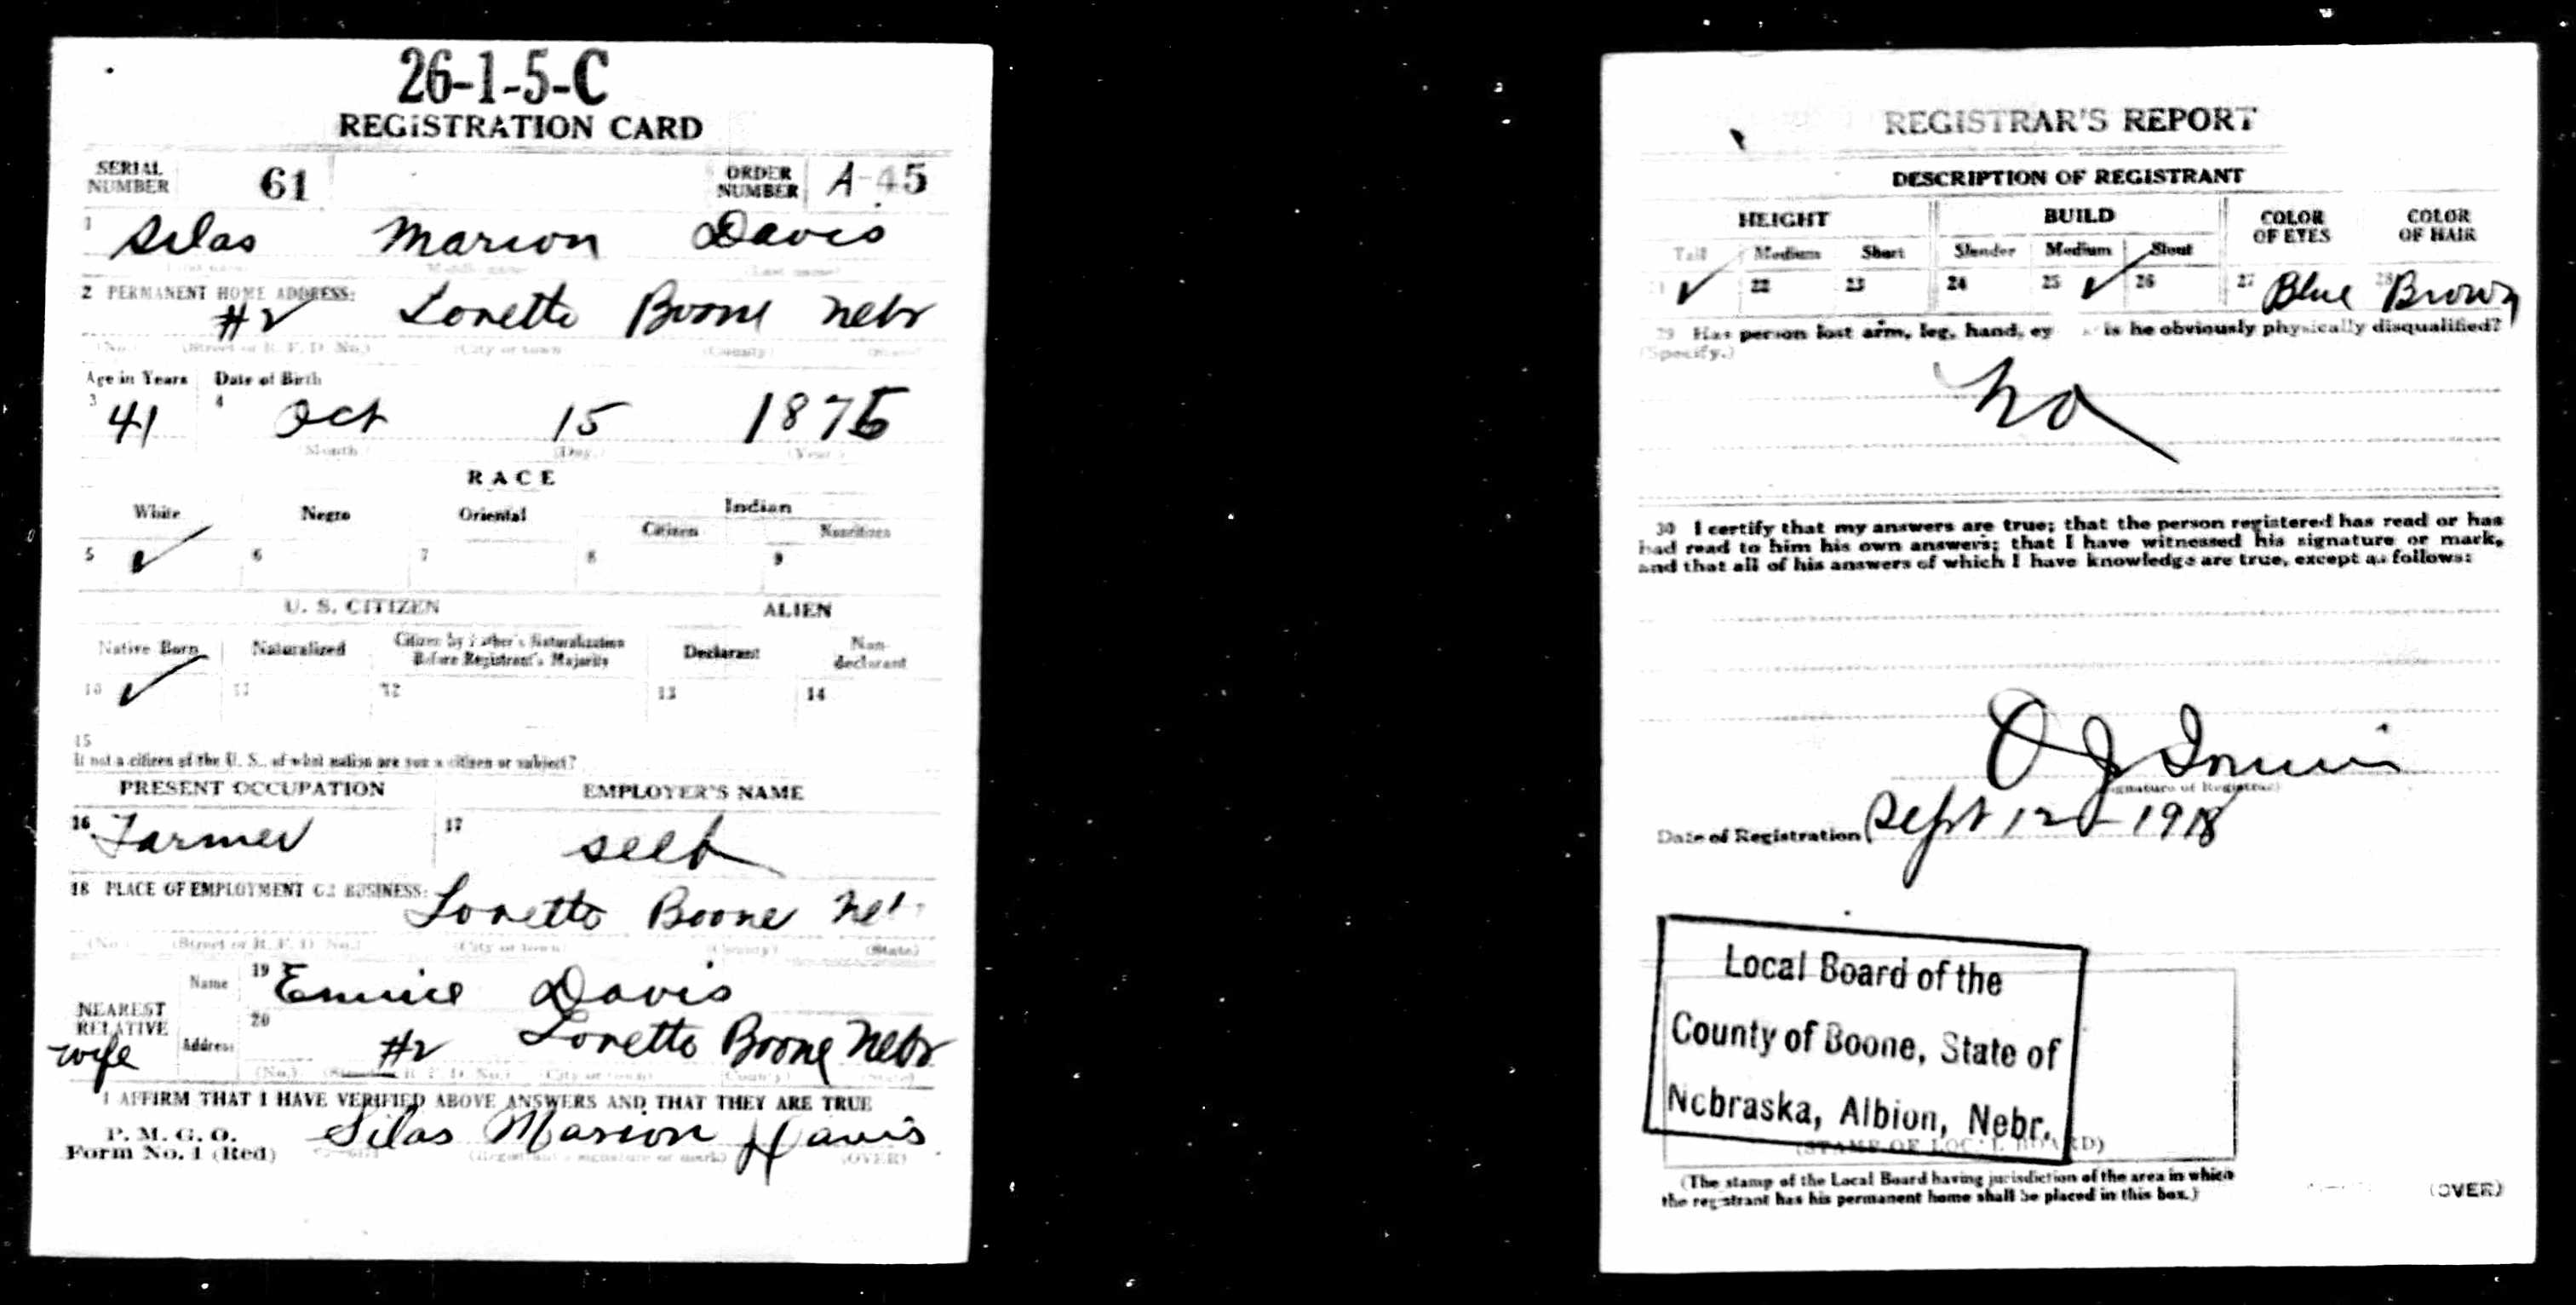 26-1-5-C
REGISTRATION CARD
SERIAL NUMBER 61 ORDER NUMBER A-45
1 Silas Marion Davis
(First name) (Middle name) (Last name)
2 PERMANENT HOME ADDRESS:
#2 Loretto Boone Nebr
(No.) (Street or R. F. D. No.) (City or town) (County) (State)
Age in Years Date of Birth
3 41 4 Oct 15 1876
(Month) (Day.) (Year.)
RACE
White Negro Oriental Indian
Citizen Noncitizen
5 ✓ 6 7 8 9
U. S. CITIZEN ALIEN
Native Born Naturalized Citizen by Father's Naturalization Before Registrant's Majority Declarant Non-declarant
10 ✓ 11 12 13 14
15
If not a citizen of the U. S., of what nation are you a citizen or subject?
PRESENT OCCUPATION EMPLOYER'S NAME
16 Farmer 17 self
18 PLACE OF EMPLOYMENT OR BUSINESS:
Loretto Boone Nebr
(No.) (Street or R. F. D. No.) (City or town) (County) (State)
NEAREST RELATIVE Name 19 Davis
wife Address 20 #2 Loretto Boone Nebr
(No.) (Street or R. F. D. No.) (City or town) (County) (State)
I AFFIRM THAT I HAVE VERIFIED ABOVE ANSWERS AND THAT THEY ARE TRUE
P. M. G. O.
Form No. 1 (Red) Silas Marion Davis
(Registrant's signature or mark) (OVER)
REGISTRAR'S REPORT
DESCRIPTION OF REGISTRANT
HEIGHT BUILD COLOR OF EYES COLOR OF HAIR
Tall Medium Short Slender Medium Stout
21 ✓ 22 23 24 25 ✓ 26 27 Blue 28 Brown
29 Has person lost arm, leg, hand, ey is he obviously physically disqualified?
(Specify.)
No
30 I certify that my answers are true; that the person registered has read or has
had read to him his own answers; that I have witnessed his signature or mark,
and that all of his answers of which I have knowledge are true, except as follows:
O J
(Signature of Registrar)
Date of Registration Sept 12 - 1918
Local Board of the
County of Boone, State of
Nebraska, Albion, Nebr.
(STAMP OF LOCAL BOARD)
(The stamp of the Local Board having jurisdiction of the area in which
the registrant has his permanent home shall be placed in this box.)
(OVER)